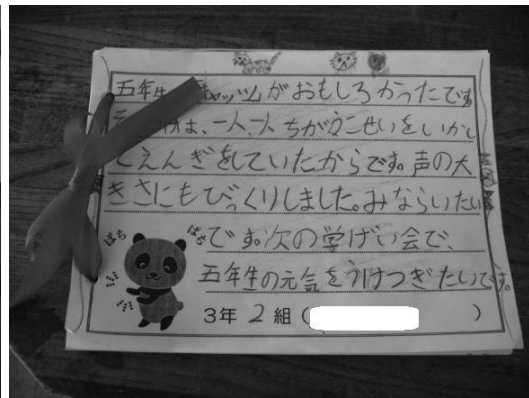 五年生 キャッツがおもしろかったです。
そ は、一人一人ちがうこせいをいかし
てえんぎをしていたからです。声の大
きさにもびっくりしました。みならいたい
ぱち ぱち です。次の学げい会で、
五年生の元気をうけつぎたいです。
3年 2 組 ( )